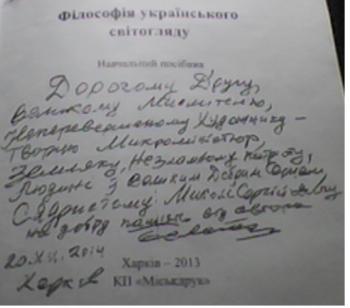 Філософія українського
світогляду
Навчальний посібник
Дорогому Другу,
великому Мислителю,
Неперевершеному Художнику –
Творцю Мікромініатюр,
Земляку, Незламному патріоту,
Людині з великим Добрим Серцем,
Сядристому Миколі Сергійовичу
на добру пам'ять від автора
20.XII.2014
Харків
Харків – 2013
КП «Міськдрук»